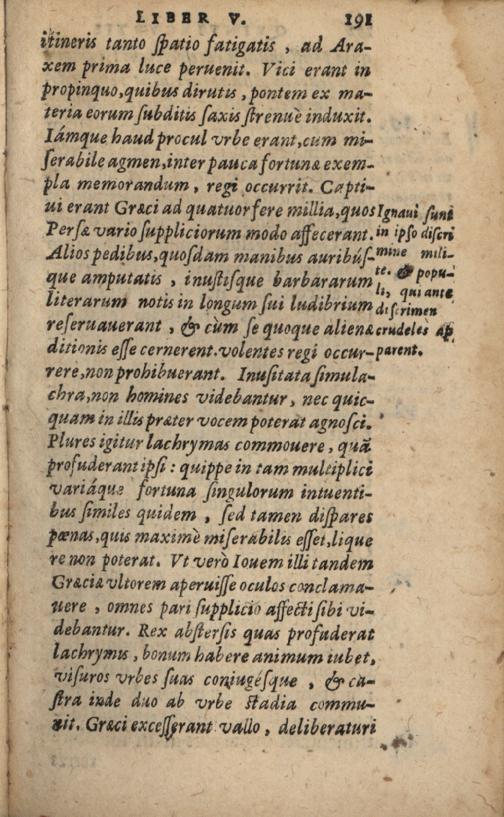 LIBER V. 191
itineris tanto ſpatio fatigatis, ad Ara-
xem prima luce peruenit. Vici erant in
propinquo, quibus dirutis, pontem ex ma-
teria eorum ſubditis ſaxis ſtrenuè induxit.
Iámque haud procul vrbe erant, cum mi-
ſerabile agmen, inter pauca fortunæ exem-
pla memorandum, regi occurrit. Capti-
ui erant Græci ad quatuor fere millia, quos
Perſæ vario ſuppliciorum modo affecerant.
Alios pedibus, quoſdam manibus auribúſ-
que amputatis, inuſtiſque barbararum
literarum notis in longum ſui ludibrium
reſeruauerant, & cùm ſe quoque alienæ
ditionis eſſe cernerent. volentes regi occur-
rere, non prohibuerant. Inuſitata ſimula-
chra, non homines videbantur, nec quic-
quam in illis præter vocem poterat agnoſci.
Plures igitur lachrymas commouere, quã
profuderant ipſi: quippe in tam multiplici
variáque fortuna ſingulorum intuenti-
bus ſimiles quidem, ſed tamen diſpares
pœnas, quis maximè miſerabilis eſſet, lique
re non poterat. Vt verò Iouem illi tandem
Græciæ vltorem aperuiſſe oculos conclama-
uere, omnes pari ſupplicio affecti ſibi vi-
debantur. Rex abſterſis quas profuderat
lachrymis, bonum habere animum iubet,
viſuros vrbes ſuas coniugéſque, & ca-
ſtra inde duo ab vrbe ſtadia commu-
nit. Græci exceſſerant vallo, deliberaturi
Ignaui ſunt
in ipſo diſcri
mine mili-
te. & popu-
li, qui ante
diſcrimen
crudeles ap
parent.